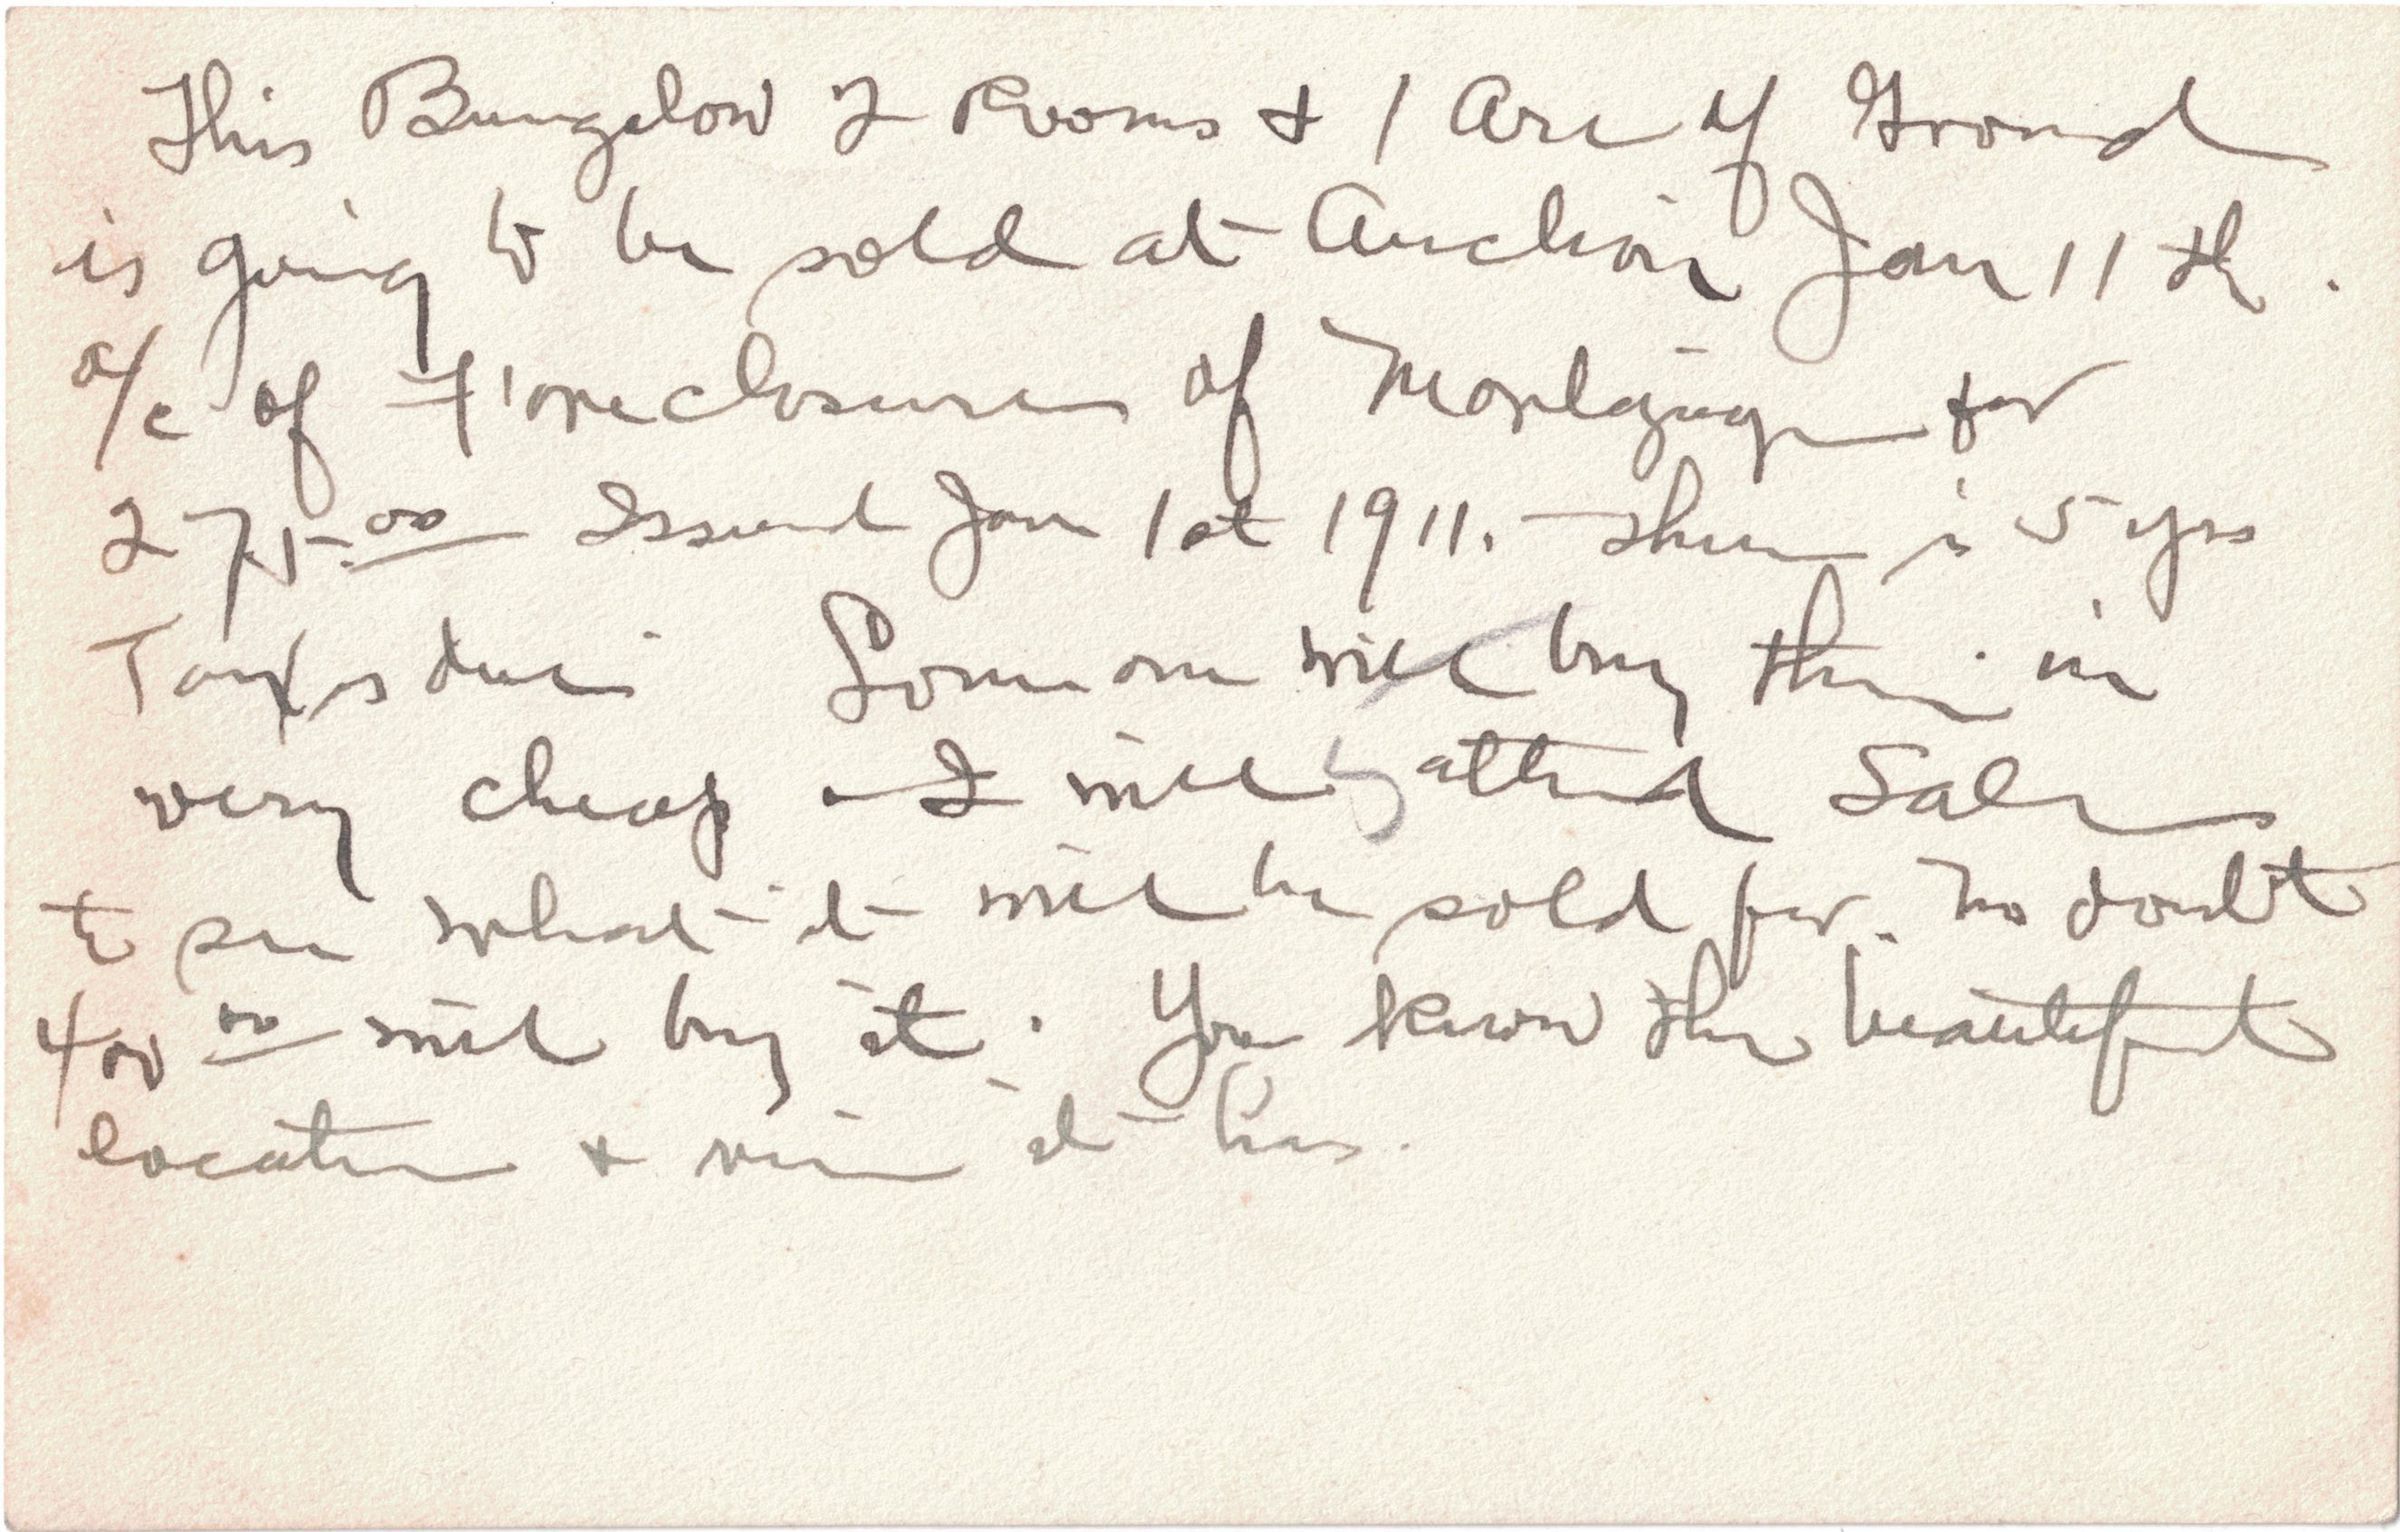 This Bungalow 2 Rooms & 1 Acre of Ground
is going to be sold at Auction Jan 11th.
a/c of Foreclosure of Mortgage for
275.00 Issued Jan 1st 1911. There is 5 yrs
Taxes due. Some one will buy this in
very cheap - I will attend Sale
to see what it will be sold for. No doubt
400 00 will buy it. You know the beautiful
location & view it has.